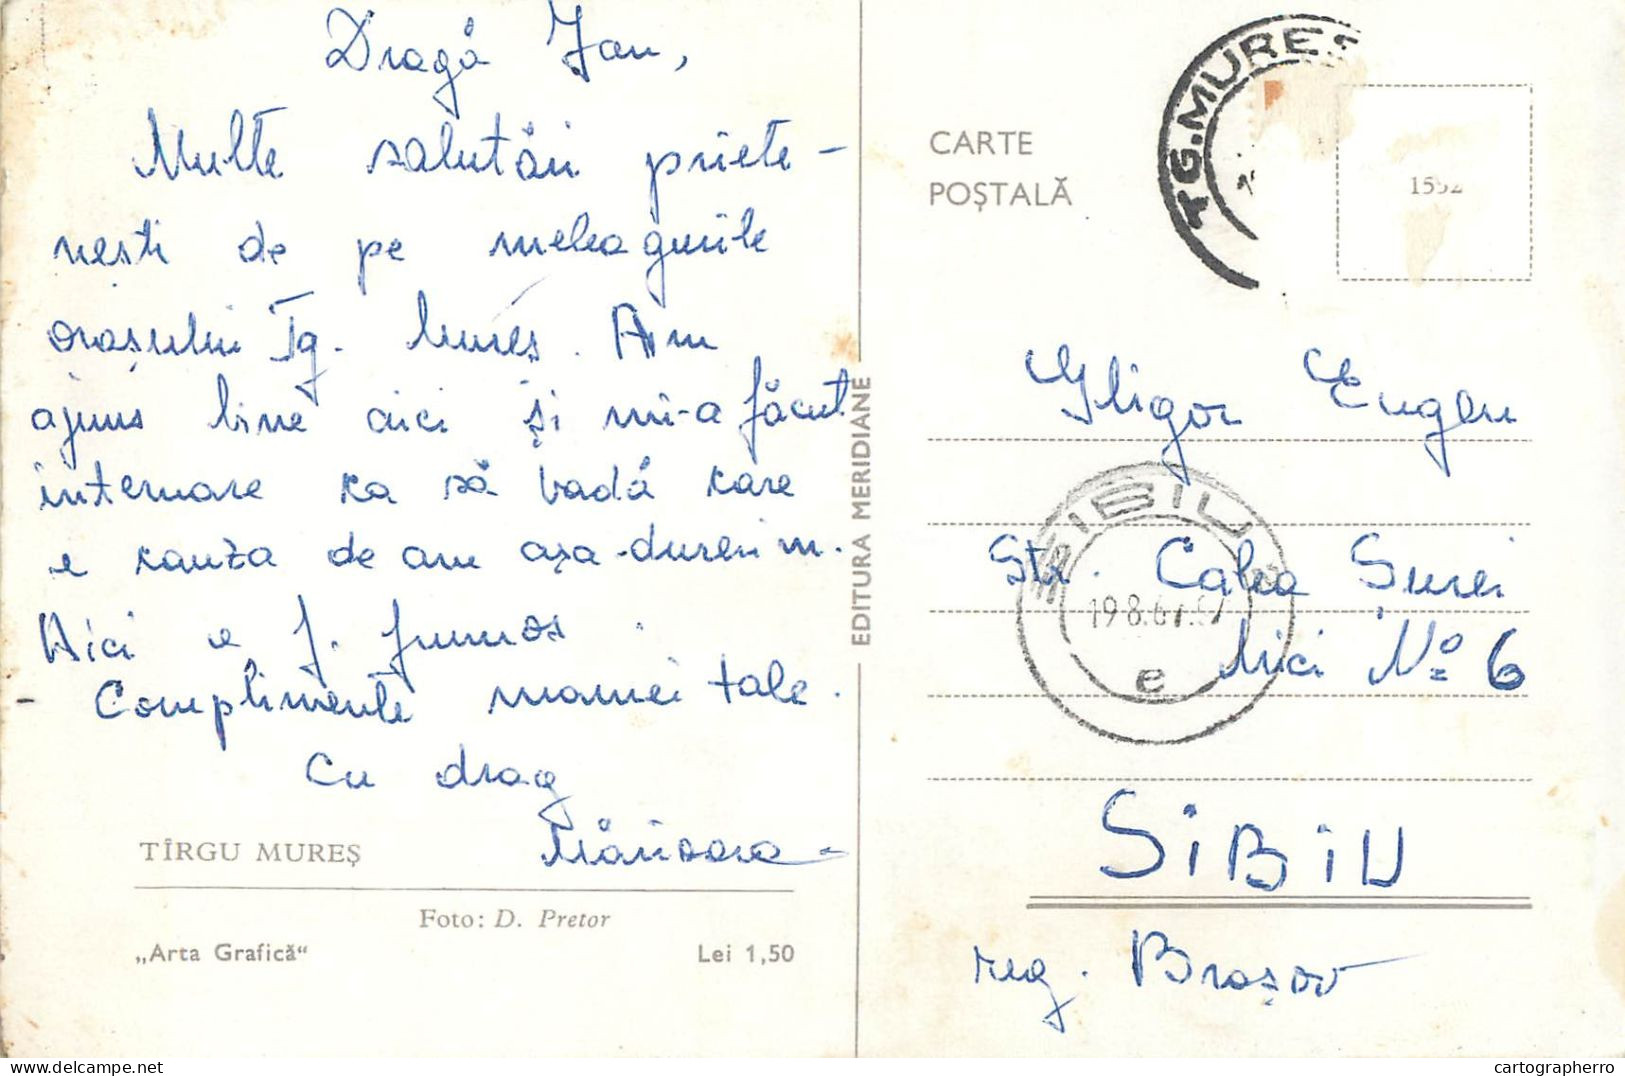 Dragă Jan,
Multe salutări priete-
nești de pe meleagurile
orașului Tg. Mureș. Am
ajuns bine aici și mi-a făcut
internare ka să vadă kare
e kauza de am așa dureri m.
Aici e f. frumos.
- Complimente mamei tale.
Cu drag
Mărioara
TÎRGU MUREȘ
Foto: D. Pretor
„Arta Grafică“ Lei 1,50
EDITURA MERIDIANE
CARTE
POȘTALĂ
TG. MUREȘ
1552
Gligor Eugen
Str. Calea Șurei
Mici No 6
SIBIU
19.8.67
e
SiBiU
reg. Brașov
cartographerro